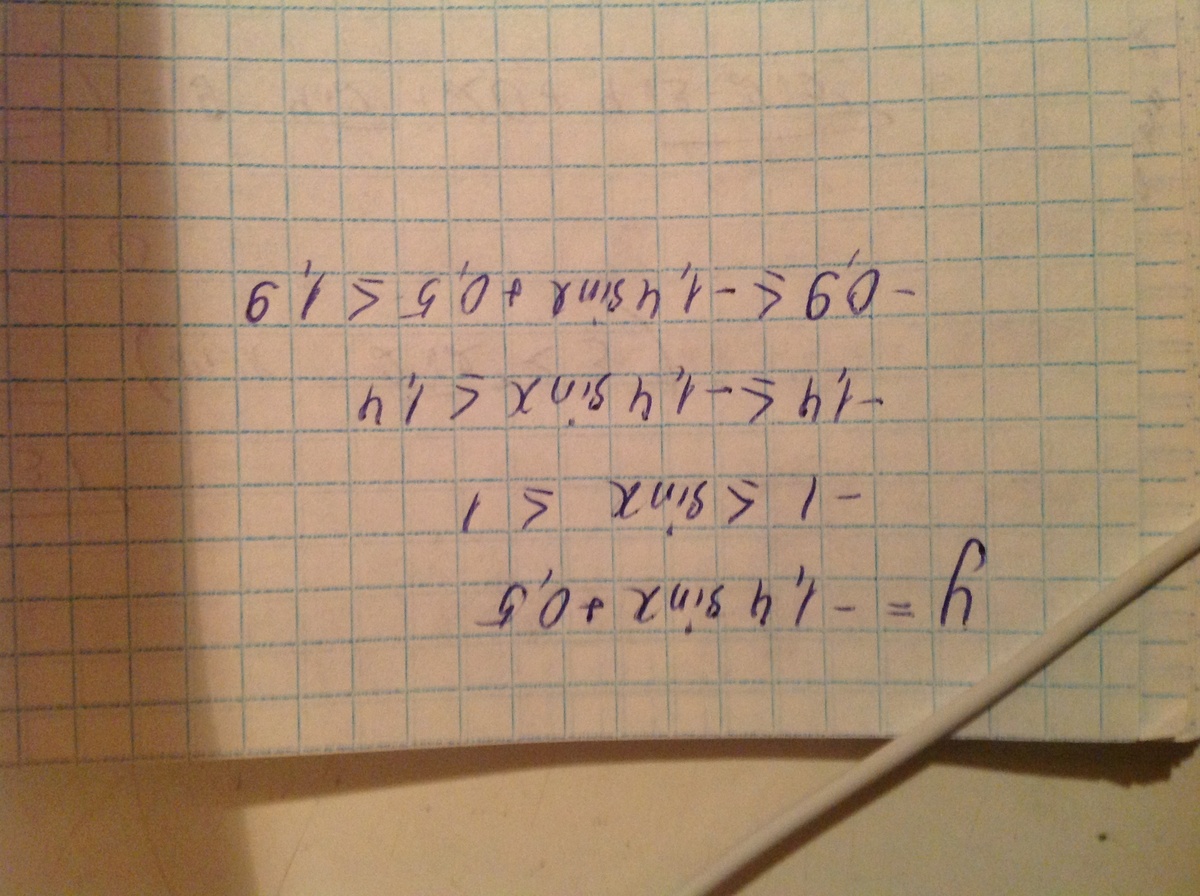 y = - 1,4 sin x + 0,5
- 1 ≤ sin x ≤ 1
- 1,4 ≤ - 1,4 sin x ≤ 1,4
- 0,9 ≤ - 1,4 sin x + 0,5 ≤ 1,9